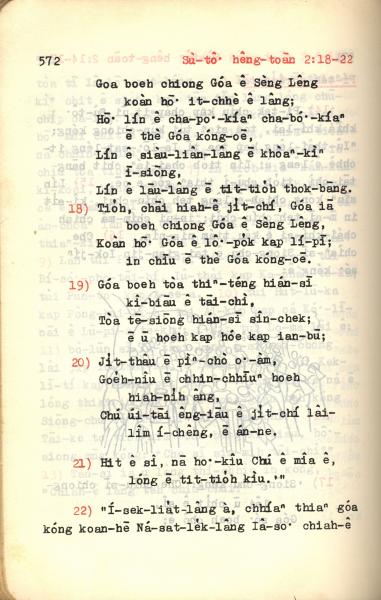 572 Sù-tô͘ hêng-toān 2:18-22
Goa boeh chiong Góa ê Sèng Lêng
koàn hō͘ it-chhè ê lâng;
Hō͘ lín ê cha-po͘-kíaⁿ cha-bó͘-kíaⁿ
ē thè Góa kóng-oē,
Lín ê siàu-liân-lâng ē khoaⁿ-kìⁿ
ī-siōng,
Lín ê lāu-lâng ē tit-tio̍h thok-bāng.
18) Tio̍h, chāi hiah-ê ji̍t-chí, Góa iā
boeh chiong Góa ê Sèng Lêng,
Koàn hō͘ Góa ê lô͘-po̍k kap lí-pī;
in chiū ē thè Góa kóng-oē.
19) Góa boeh tòa thiⁿ-téng hián-sī
kî-biāu ê tāi-chì,
Tòa tē-siōng hián-sī sîn-chek;
ē ū hoeh kap hóe kap ian-bū;
20) Ji̍t-thâu ē pìⁿ-chò o͘-àm,
Goe̍h-niû ē chhin-chhīuⁿ hoeh
hiah-nih âng,
Chú úi-tāi êng-iāu ê ji̍t-chí lâi-
lîm í-chêng, ē án-ne.
21) Hit ê sî, nā ho͘-kîu Chú ê mîa ê,
lóng ē tit-tio̍h kìu.'"
22) "Í-sek-lia̍t-lâng à, chhíaⁿ thiaⁿ góa
kóng koan-hē Ná-sat-le̍k-lâng Iâ-so͘ chiah-ê